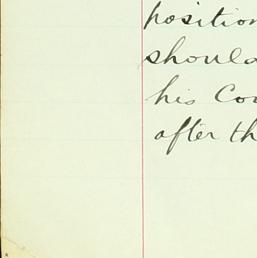 position
should
his Cou
after th